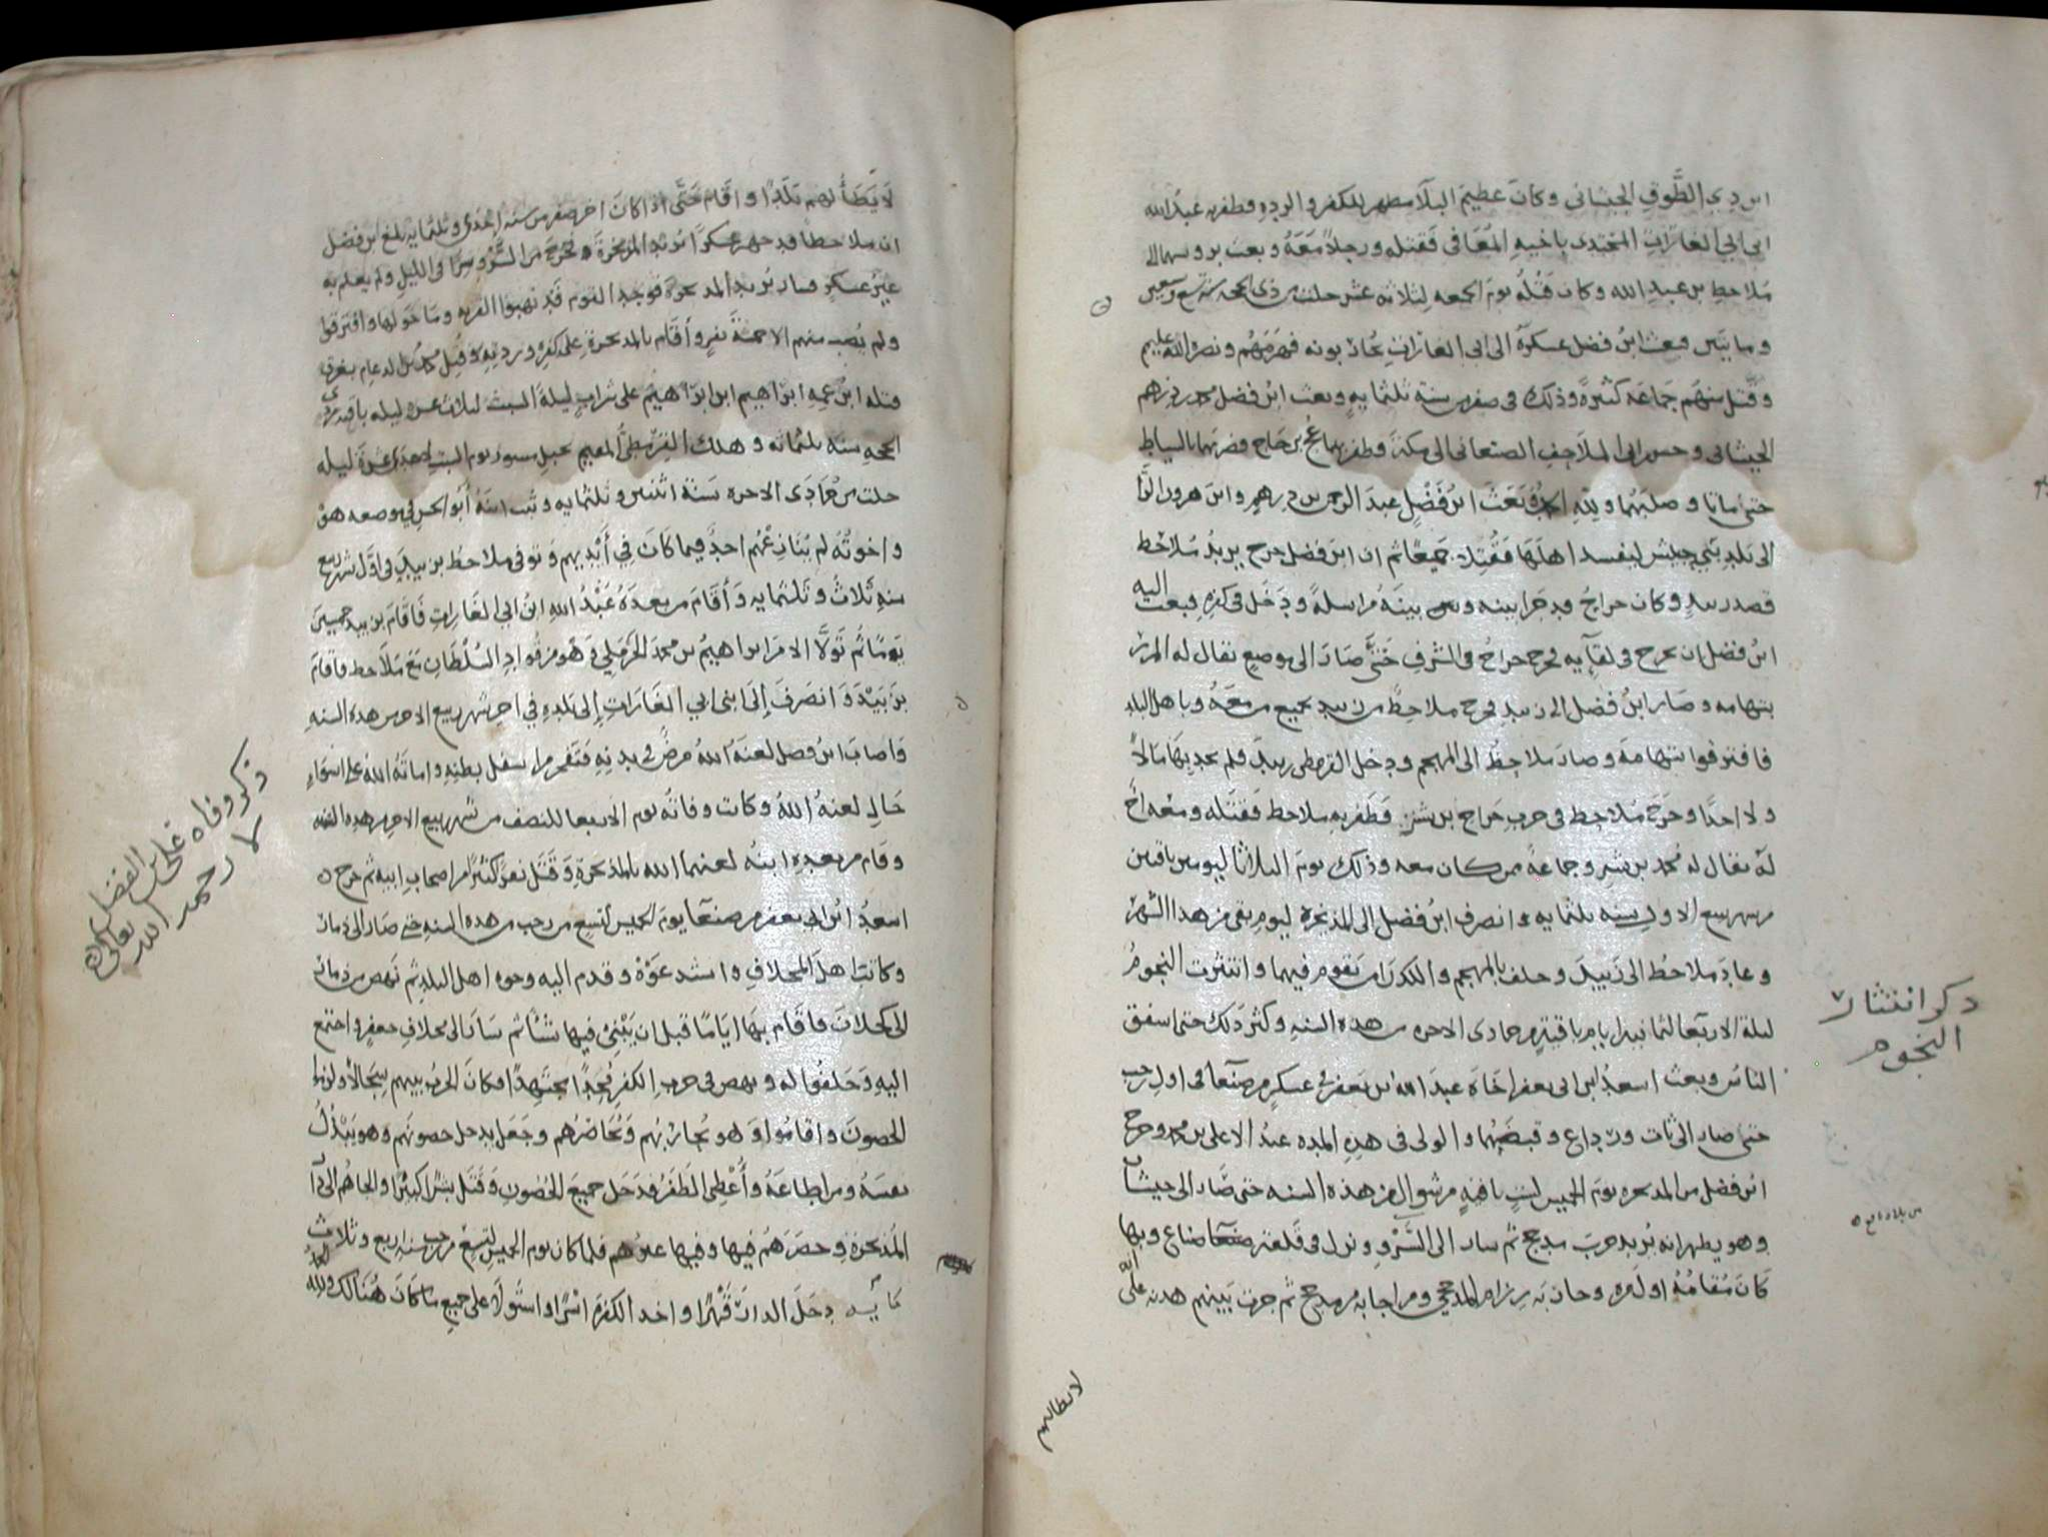 ابن ذي الطَّوق الجيشاني وكان عظيم البلاء مظهر للكفر والرده وظفر به عبد الله
ابن ابي الغارات المجندي باخيه المعافى فقتله ورجلاً معه وبعث بروسهما الى
ملاحظ بن عبد الله وكان قتله يوم الجمعه لثلاثه عشر خلت من ذي الحجه سنه تسع وتسعين
ومايتين فبعث ابن فضل عسكره الى ابي الغارات يحاربونه فهزمهم ونصر الله عليهم
وقتل منهم جماعه كثيرة وذلك في صفر من سنة ثلثمايه وبعث ابن فضل محمد بن درهم
الجيشاني وحسن ابن الملاحف الصنعاني الى مكة وظفر بهما عج بن حاج فضربهما بالسياط
حتى ماتا وصلبهما ولله الحمد وبعث ابن فضل عبد الرحمن بن درهم وابن هرون
الى بلد بني حبيش ليفسد اهلها فقتلا جميعًا ثم ان ابن فضل خرج يريد ملاحظ
فصدر بيد وكان حراج قد جرا بينه وبين بينه مراسلة ودخل في كفره فبعث اليه
ابن فضل ان يخرج في لقآيه فخرج حراج في الشرف حتى صار الى موضع يقال له المرر
بتهامه وصار ابن فضل الى زبيد فخرج ملاحظ من زبيد بجميع من معه وباهل البلد
فافترقوا بتهامة وصار ملاحظ الى المهجم ودخل القرمطي زبيد فلم يجد بها مالاً
ولا احدًا وخرج ملاحظ في حرب حراج بن بشر فظفر به ملاحظ فقتله ومعه اخ
له يقال له محمد بن بشر وجماعة ممن كان معه وذلك يوم الثلاثا ليومين باقيين
من شهر ربيع الاول سنه ثلثمايه وانصرف ابن فضل الى المذيخرة ليوم بقي من هذا الشهر
وعاد ملاحظ الى زبيد وخلف بالمهجم والكدرا من يقوم فيهما وانتثرت النجوم
ليلة الاربعا لثمانية ايام باقية من جمادى الاخره من هذه السنه وكثر ذلك حتى اشفق
الناس وبعث اسعد ابن ابي يعفر اخاه عبد الله بن يعفر في عسكر من صنعآ في اول رجب
حتى صار الى ثات ورداع وقبضهما والوالي في هذه المده عبد الاعلى بن محمد وخرج
ابن فضل من المذيخره يوم الخميس لست باقيه من شوال من هذه السنه حتى صار الى جيشان
وهو يظهر انه يريد حرب مذحج ثم سار الى السرو ونزل في قلعة صناع وبها
كان مقامه اول مره وحاربه رزام المذحجي ومن اجابه من مذحج ثم جرت بينهم هدنه على ان
لا يطالهم
ذكر انتثار
النجوم
لا يَطَأُ لهم بلدًا واقام حتى اذا كان اخر صفر من سنه احدى وثلثمايه بلغ ابن فضل
ان ملاحظا قد جهز عسكرًا يريد المذيخرة فخرج من السرو سرًا في الليل ولم يعلم به
غير عسكره فسار يريد المذيخرة فوجد القوم قد نهبوا القريه وما حولها وافترقوا
ولم يُصِب منهم الا خمسة نفر واقام بالمذيخرة على كفره وردته وقُتل محمد بن الدعام بغرق
قتله ابن عمه ابراهيم ابن ابراهيم على شراب ليلة السبت لثلاث عشرة ليله باقيه من ذي
الحجه سنه ثلثمائه وهلك القرمطي المقيم بجبل مسور يوم السبت لاحدى عشرة ليله
خلت من جمادى الاخره سنة اثنين وثلثمايه وثبت ابنه ابو الحسن في موضعه هو
واخوته لم ينازعهم احد فيما كان في أيديهم وتوفى ملاحظ بزبيد في اول شهر ربيع
سنه ثلاث وثلثمايه وأقام من بعده عبد الله ابن ابي الغارات فأقام بزبيد خمسين
يومًا ثم تولا الامر ابراهيم بن محمد الحرملي وهو من قواد السلطان مع ملاحظ فاقام
بزبيد وانصرف إلى ابن ابي الغارات إلى بلده في اخر شهر ربيع الاخر من هذه السنه
واصاب ابن فضل لعنه الله مرض في بدنه فتفجر من اسفل بطنه واماته الله على اسوء
حال لعنه الله وكانت وفاته يوم الاربعا للنصف من شهر ربيع الاخر من هذه السنه
وقام من بعده ابنه لعنهما الله بالمذيخرة وقتل نفرًا كثيرًا من اصحاب ابيه ثم خرج
اسعد ابن ابي يعفر من صنعآ يوم الخميس لتسع من رجب من هذه السنه حتى صار الى ذمار
وكاتب اهل المخلاف واستدعوه وقدم اليه وجوه اهل البلد ثم نهض من ذمار
الى كحلان فاقام بها ايامًا قبل ان يَبْنِي فيها شيأ ثم سار الى مخلاف جعفر واجتمع
اليه وحلفوا له ونهض في حرب الكفرة مُجدًا مجتهدًا فكان الحرب بينهم سجالاً ولزموا
الحصون واقاموا وهو يحاربهم ويحاصرهم وجعل يدخل حصونهم وهو يبذل
نفسه ومن اطاعه وأعطي الظفر فدخل جميع الحصون وقتل بشرًا كثيرًا والجاهم الى دار
المذيخرة وحصرهم فيها وفيها عبرهم فلما كان يوم الخميس لتسع من رجب سنه اربع وثلاث
مأيه دخل الدار قهرًا واخذ الكفرة اسرًا واستولا على جميع ما كان هنالك ولله الحمد
ذكر وفاه علي بن الفضل
لا رحمه الله تعالى